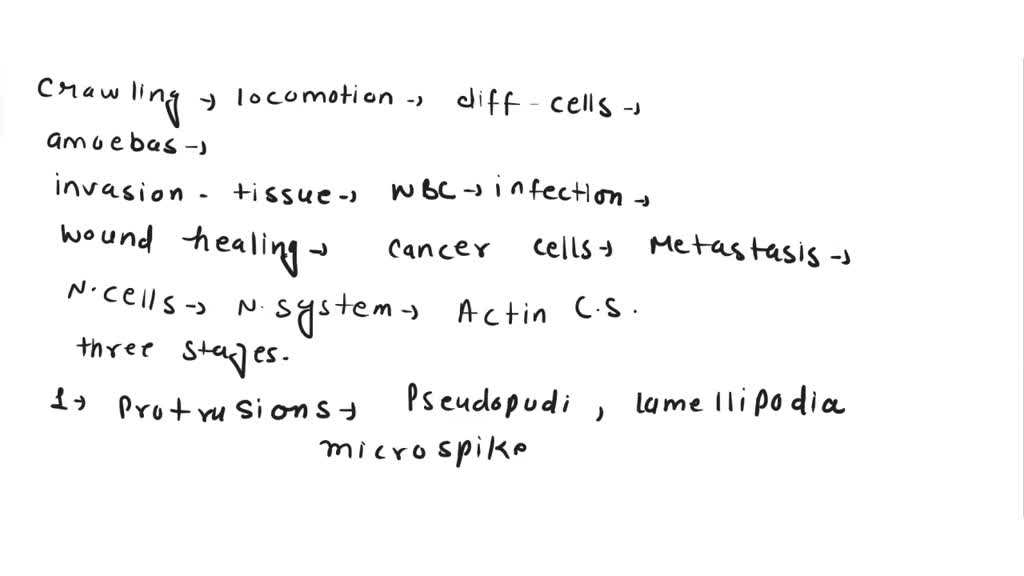 Crawling → locomotion → diff - cells →
amoebas →
invasion - tissue → WBC → infection →
Wound healing → cancer cells → Metastasis →
N. cells → N. system → Actin C.S.
three stages.
1 → Protrusions → Pseudopudi, lamellipodia
microspike